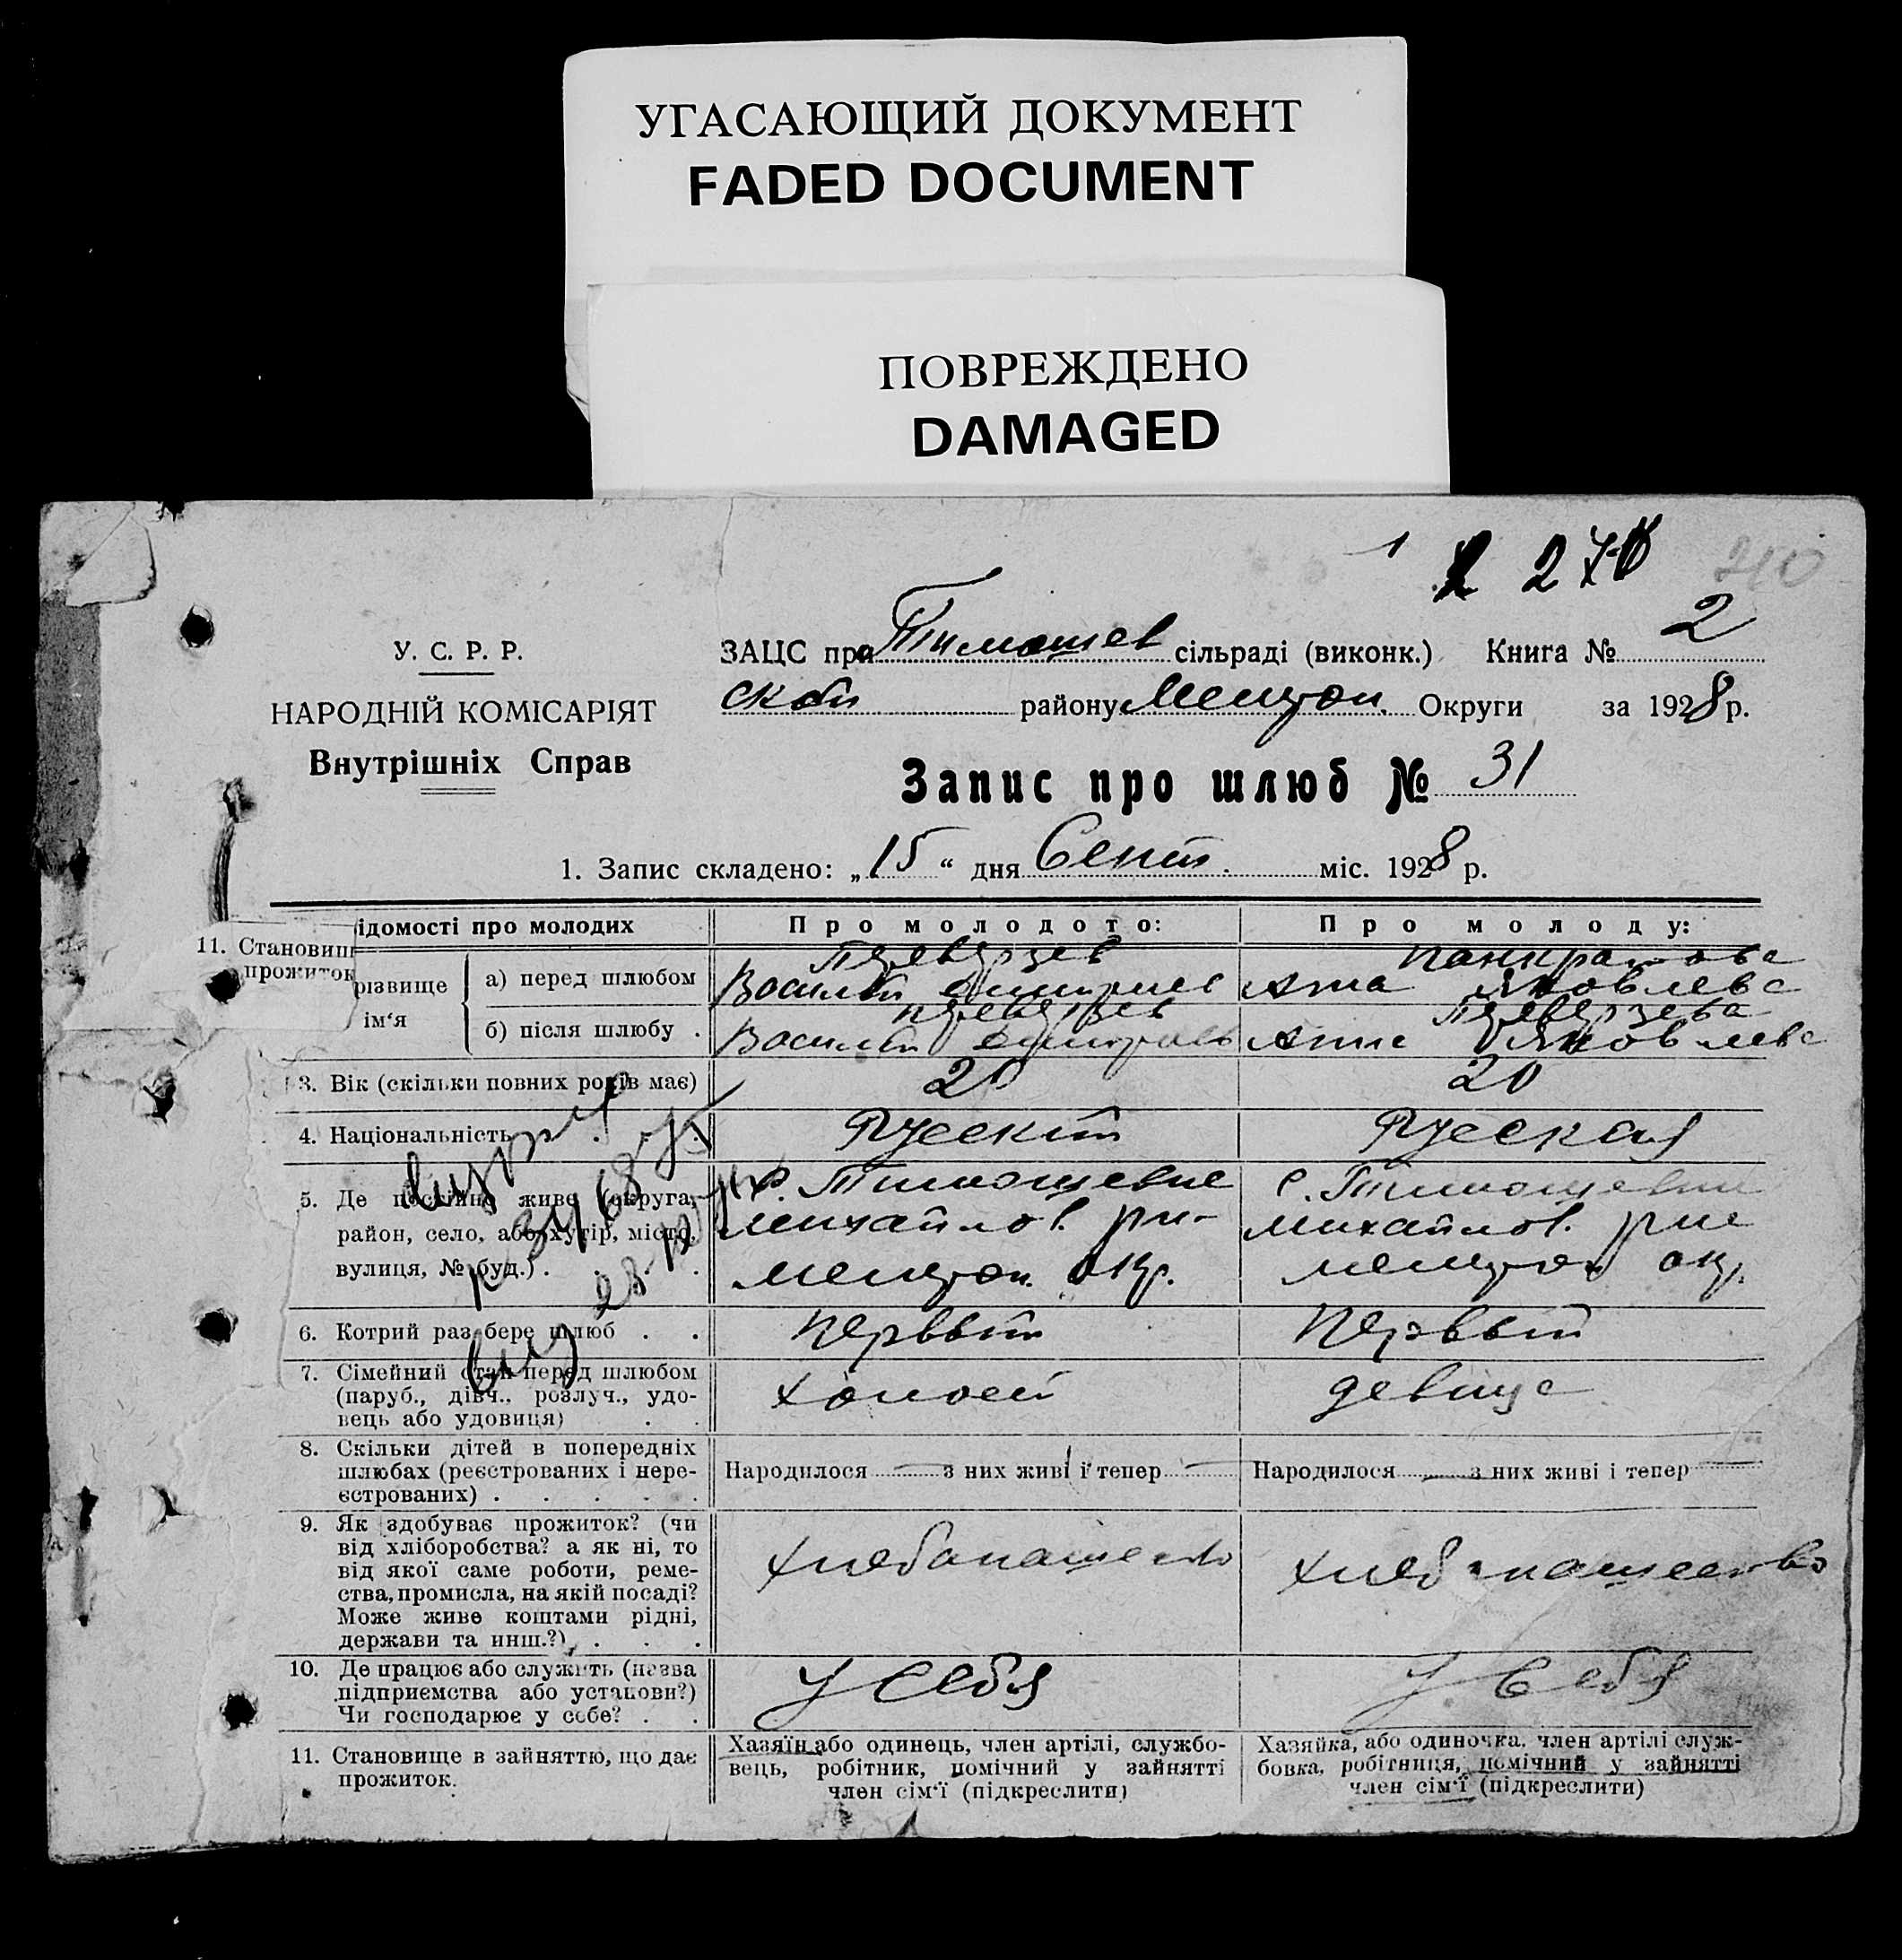 УГАСАЮЩИЙ ДОКУМЕНТ
FADED DOCUMENT
ПОВРЕЖДЕНО
DAMAGED
2 270
210
У. С. Р. Р.
НАРОДНІЙ КОМІСАРІЯТ
Внутрішніх Справ
ЗАЦС при Тимошев сільраді (виконк.) Книга № 2
ской району Мелитоп. Округи за 1928 р.
Запис про шлюб № 31
1. Запис складено: „ 15 “ дня Сент. міс. 1928 р.
ідомості про молодих
Про молодого:
Про молоду:
11. Становищ
прожиток
різвище
ім'я
а) перед шлюбом
Переверзев
Василий
Панкратова
Анна Яковлева
б) після шлюбу .
Переверзев
Василий
Переверзева
Анна Яковлева
3. Вік (скільки повних років має)
20
20
4. Національність
Русский
Русская
5. Де постійно живе (округа,
район, село, або хутір, місто,
вулиця, № буд.) . . . .
с. Тимошевке
михайлов. рн-
мелитоп. окр.
с. Тимошевке
михайлов. рне
мелитоп окр.
6. Котрий раз бере шлюб . .
Первый
Первый
7. Сімейний стан перед шлюбом
(паруб., дівч., розлуч., удо-
вець або удовиця) . .
холост
девица
8. Скільки дітей в попередніх
шлюбах (реєстрованих і нере-
єстрованих) . . . . .
Народилося — з них живі і тепер —
Народилося — з них живі і тепер —
9. Як здобуває прожиток? (чи
від хліборобства? а як ні, то
від якої саме роботи, реме-
ства, промисла, на якій посаді?
Може живе коштами рідні,
держави та инш.?) . . .
хлебопашество
хлебопашество
10. Де працює або служить (назва
підприємства або установи?)
Чи господарює у себе? . .
У себя
У себя
11. Становище в зайняттю, що дає
прожиток.
Хазяїн або одинець, член артілі, службо-
вець, робітник, помічний у зайнятті
член сім'ї (підкреслити)
Хазяйка, або одиночка, член артілі служ-
бовка, робітниця, помічний у зайнятті
член сім'ї (підкреслити)